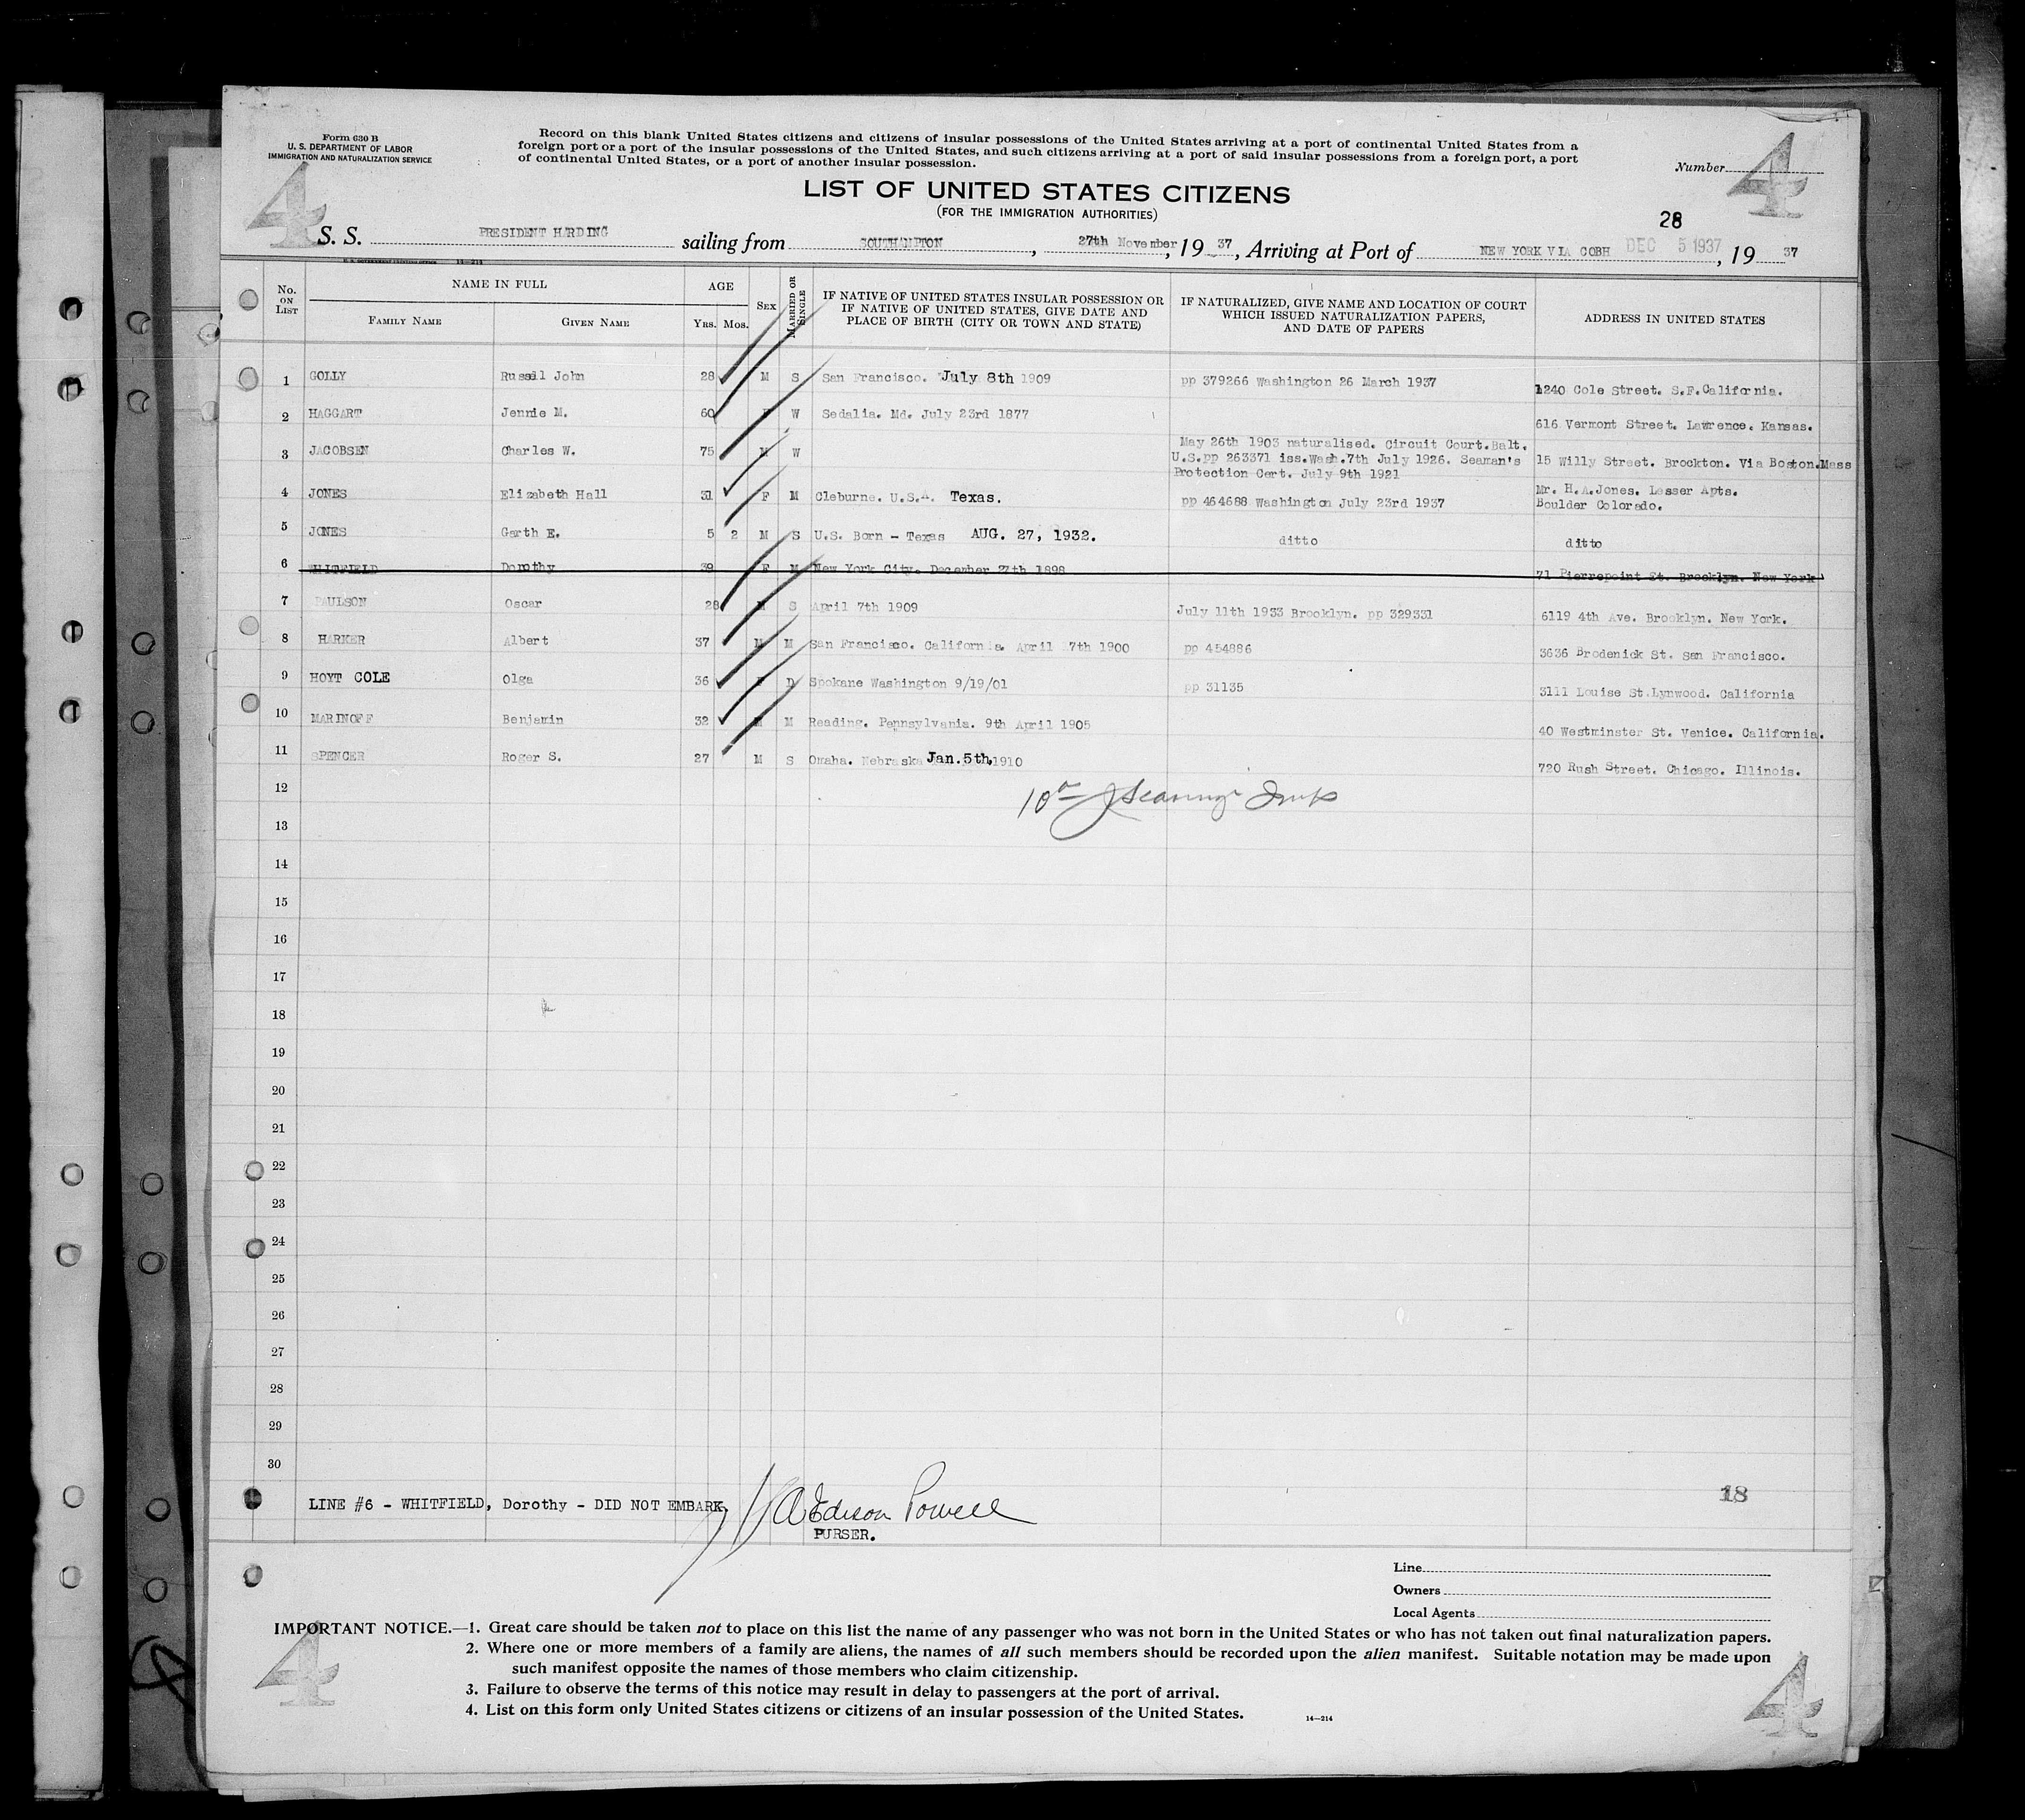 Form 630 B
U. S. DEPARTMENT OF LABOR
IMMIGRATION AND NATURALIZATION SERVICE
Record on this blank United States citizens and citizens of insular possessions of the United States arriving at a port of continental United States from a
foreign port or a port of the insular possessions of the United States, and such citizens arriving at a port of said insular possessions from a foreign port, a port
of continental United States, or a port of another insular possession.
Number
4
4
LIST OF UNITED STATES CITIZENS
(FOR THE IMMIGRATION AUTHORITIES)
28
S. S. PRESIDENT HARDING sailing from SOUTHAMPTON, 27th November, 19 37, Arriving at Port of NEW YORK VIA COBH DEC 5 1937, 19 37
No. ON LIST
NAME IN FULL
FAMILY NAME
GIVEN NAME
AGE
YRS. MOS.
SEX
MARRIED OR SINGLE
IF NATIVE OF UNITED STATES INSULAR POSSESSION OR
IF NATIVE OF UNITED STATES, GIVE DATE AND
PLACE OF BIRTH (CITY OR TOWN AND STATE)
IF NATURALIZED, GIVE NAME AND LOCATION OF COURT
WHICH ISSUED NATURALIZATION PAPERS,
AND DATE OF PAPERS
ADDRESS IN UNITED STATES
1 GOLLY Russell John 28 M S San Francisco. July 8th 1909 pp 379266 Washington 26 March 1937 1240 Cole Street. S.F.California.
2 HAGGART Jennie M. 60 F W Sedalia. Md. July 23rd 1877 616 Vermont Street. Lawrence. Kansas.
3 JACOBSEN Charles W. 75 M W May 26th 1903 naturalised. Circuit Court.Balt.
U.S.pp 263371 iss.Wash.7th July 1926. Seaman's 15 Willy Street. Brockton. Via Boston.Mass
Protection Cert. July 9th 1921
4 JONES Elizabeth Hall 31 F M Cleburne. U.S.A. Texas. pp 464688 Washington July 23rd 1937 Mr. H.A.Jones. Lesser Apts.
Boulder Colorado.
5 JONES Garth E. 5 2 M S U.S. Born - Texas AUG. 27, 1932. ditto ditto
6 WHITFIELD Dorothy 39 F M New York City. December 27th 1898 71 Pierrepoint St. Brooklyn. New York
7 PAULSON Oscar 28 M S April 7th 1909 July 11th 1933 Brooklyn. pp 329331 6119 4th Ave. Brooklyn. New York.
8 HARKER Albert 37 M M San Francisco. California. April 7th 1900 pp 454886 3636 Brodenick St. San Francisco.
9 HOYT COLE Olga 36 F D Spokane Washington 9/19/01 pp 31135 3111 Louise St.Lynwood. California
10 MARINOFF Benjamin 32 M M Reading. Pennsylvania. 9th April 1905 40 Westminster St. Venice. California.
11 SPENCER Roger S. 27 M S Omaha. Nebraska Jan.5th,1910 720 Rush Street. Chicago. Illinois.
12
13
14
15
16
17
18
19
20
21
22
23
24
25
26
27
28
29
30
LINE #6 - WHITFIELD, Dorothy - DID NOT EMBARK.
Edison Powell
PURSER.
18
Line
Owners
Local Agents
IMPORTANT NOTICE.—1. Great care should be taken not to place on this list the name of any passenger who was not born in the United States or who has not taken out final naturalization papers.
2. Where one or more members of a family are aliens, the names of all such members should be recorded upon the alien manifest. Suitable notation may be made upon
such manifest opposite the names of those members who claim citizenship.
3. Failure to observe the terms of this notice may result in delay to passengers at the port of arrival.
4. List on this form only United States citizens or citizens of an insular possession of the United States.
14—214
4
4